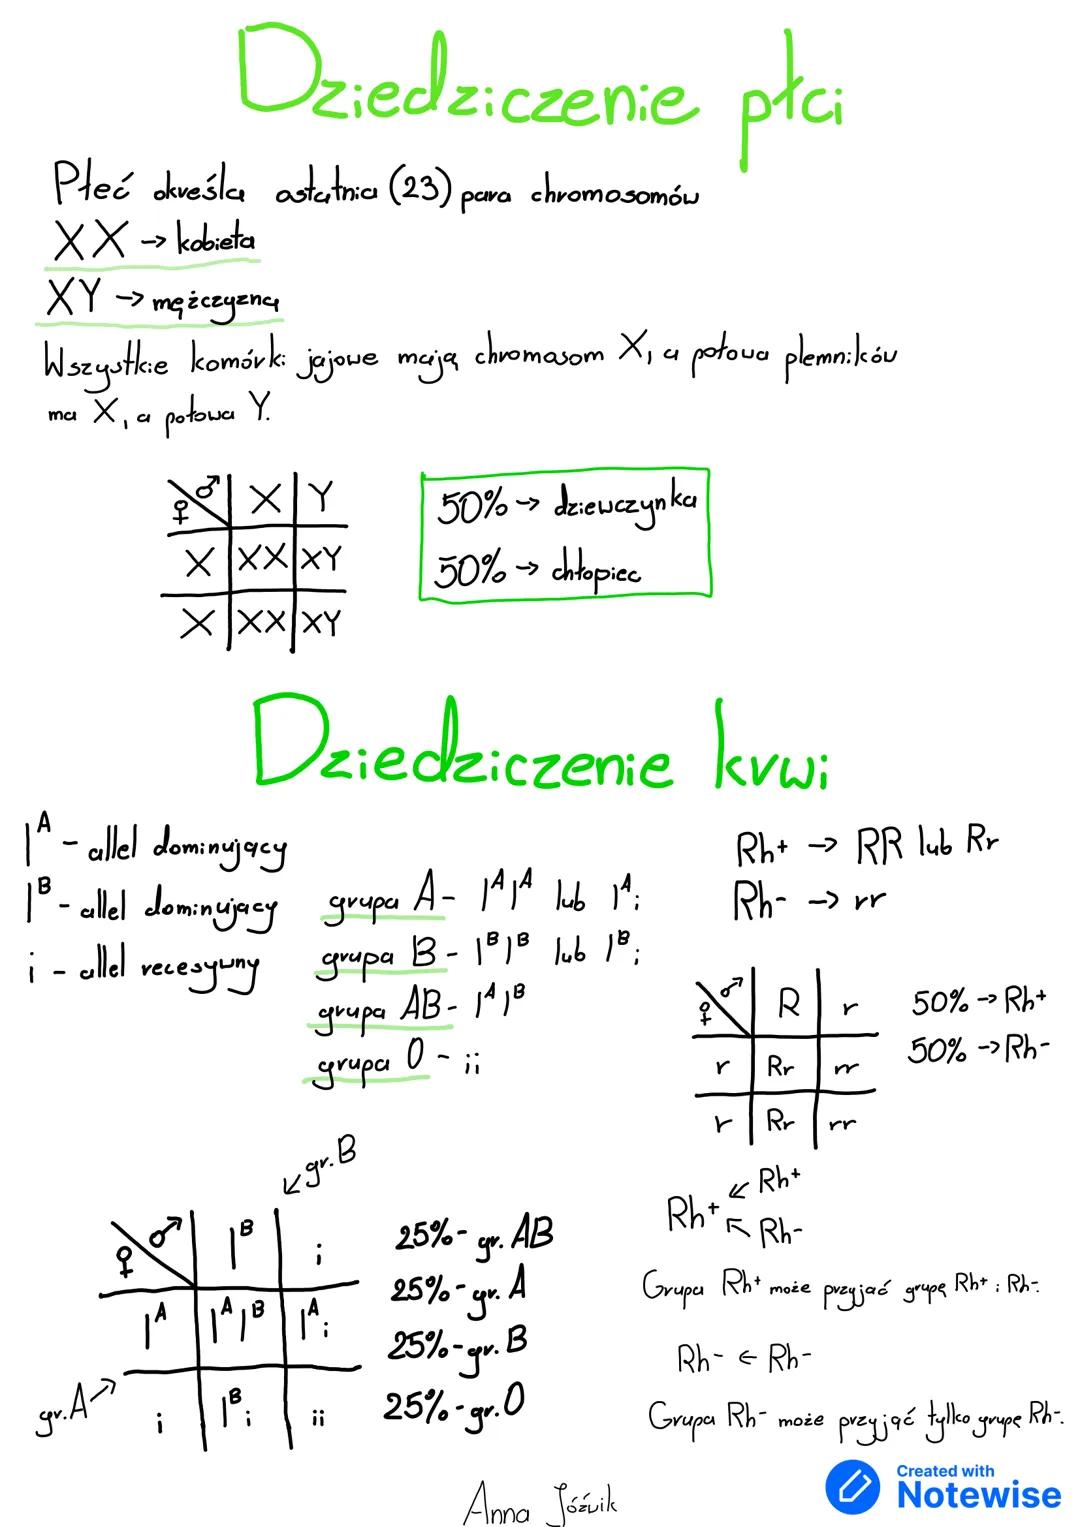 Dziedziczenie płci
Płeć określa ostatnia (23) para chromosomów
XX → kobieta
XY → mężczyzna
Wszystkie komórki jajowe mają chromosom X, a połowa plemników
ma X, a połowa Y.
♀ ♂ X Y
X XX XY
X XX XY
50% → dziewczynka
50% → chłopiec
Dziedziczenie krwi
I^A - allel dominujący
I^B - allel dominujący
i - allel recesywny
grupa A - I^A I^A lub I^A i
grupa B - I^B I^B lub I^B i
grupa AB - I^A I^B
grupa 0 - ii
Rh+ → RR lub Rr
Rh- → rr
♀ ♂ R r
r Rr rr
r Rr rr
50% → Rh+
50% → Rh-
↙ gr. B
♀ ♂ I^B i
I^A I^A I^B I^A i
gr. A ↗ i I^B i ii
25% - gr. AB
25% - gr. A
25% - gr. B
25% - gr. 0
Rh+ ↙ Rh+
↖ Rh-
Grupa Rh+ może przyjąć grupę Rh+ i Rh-.
Rh- ← Rh-
Grupa Rh- może przyjąć tylko grupę Rh-.
Anna Jóźwik
Created with
Notewise